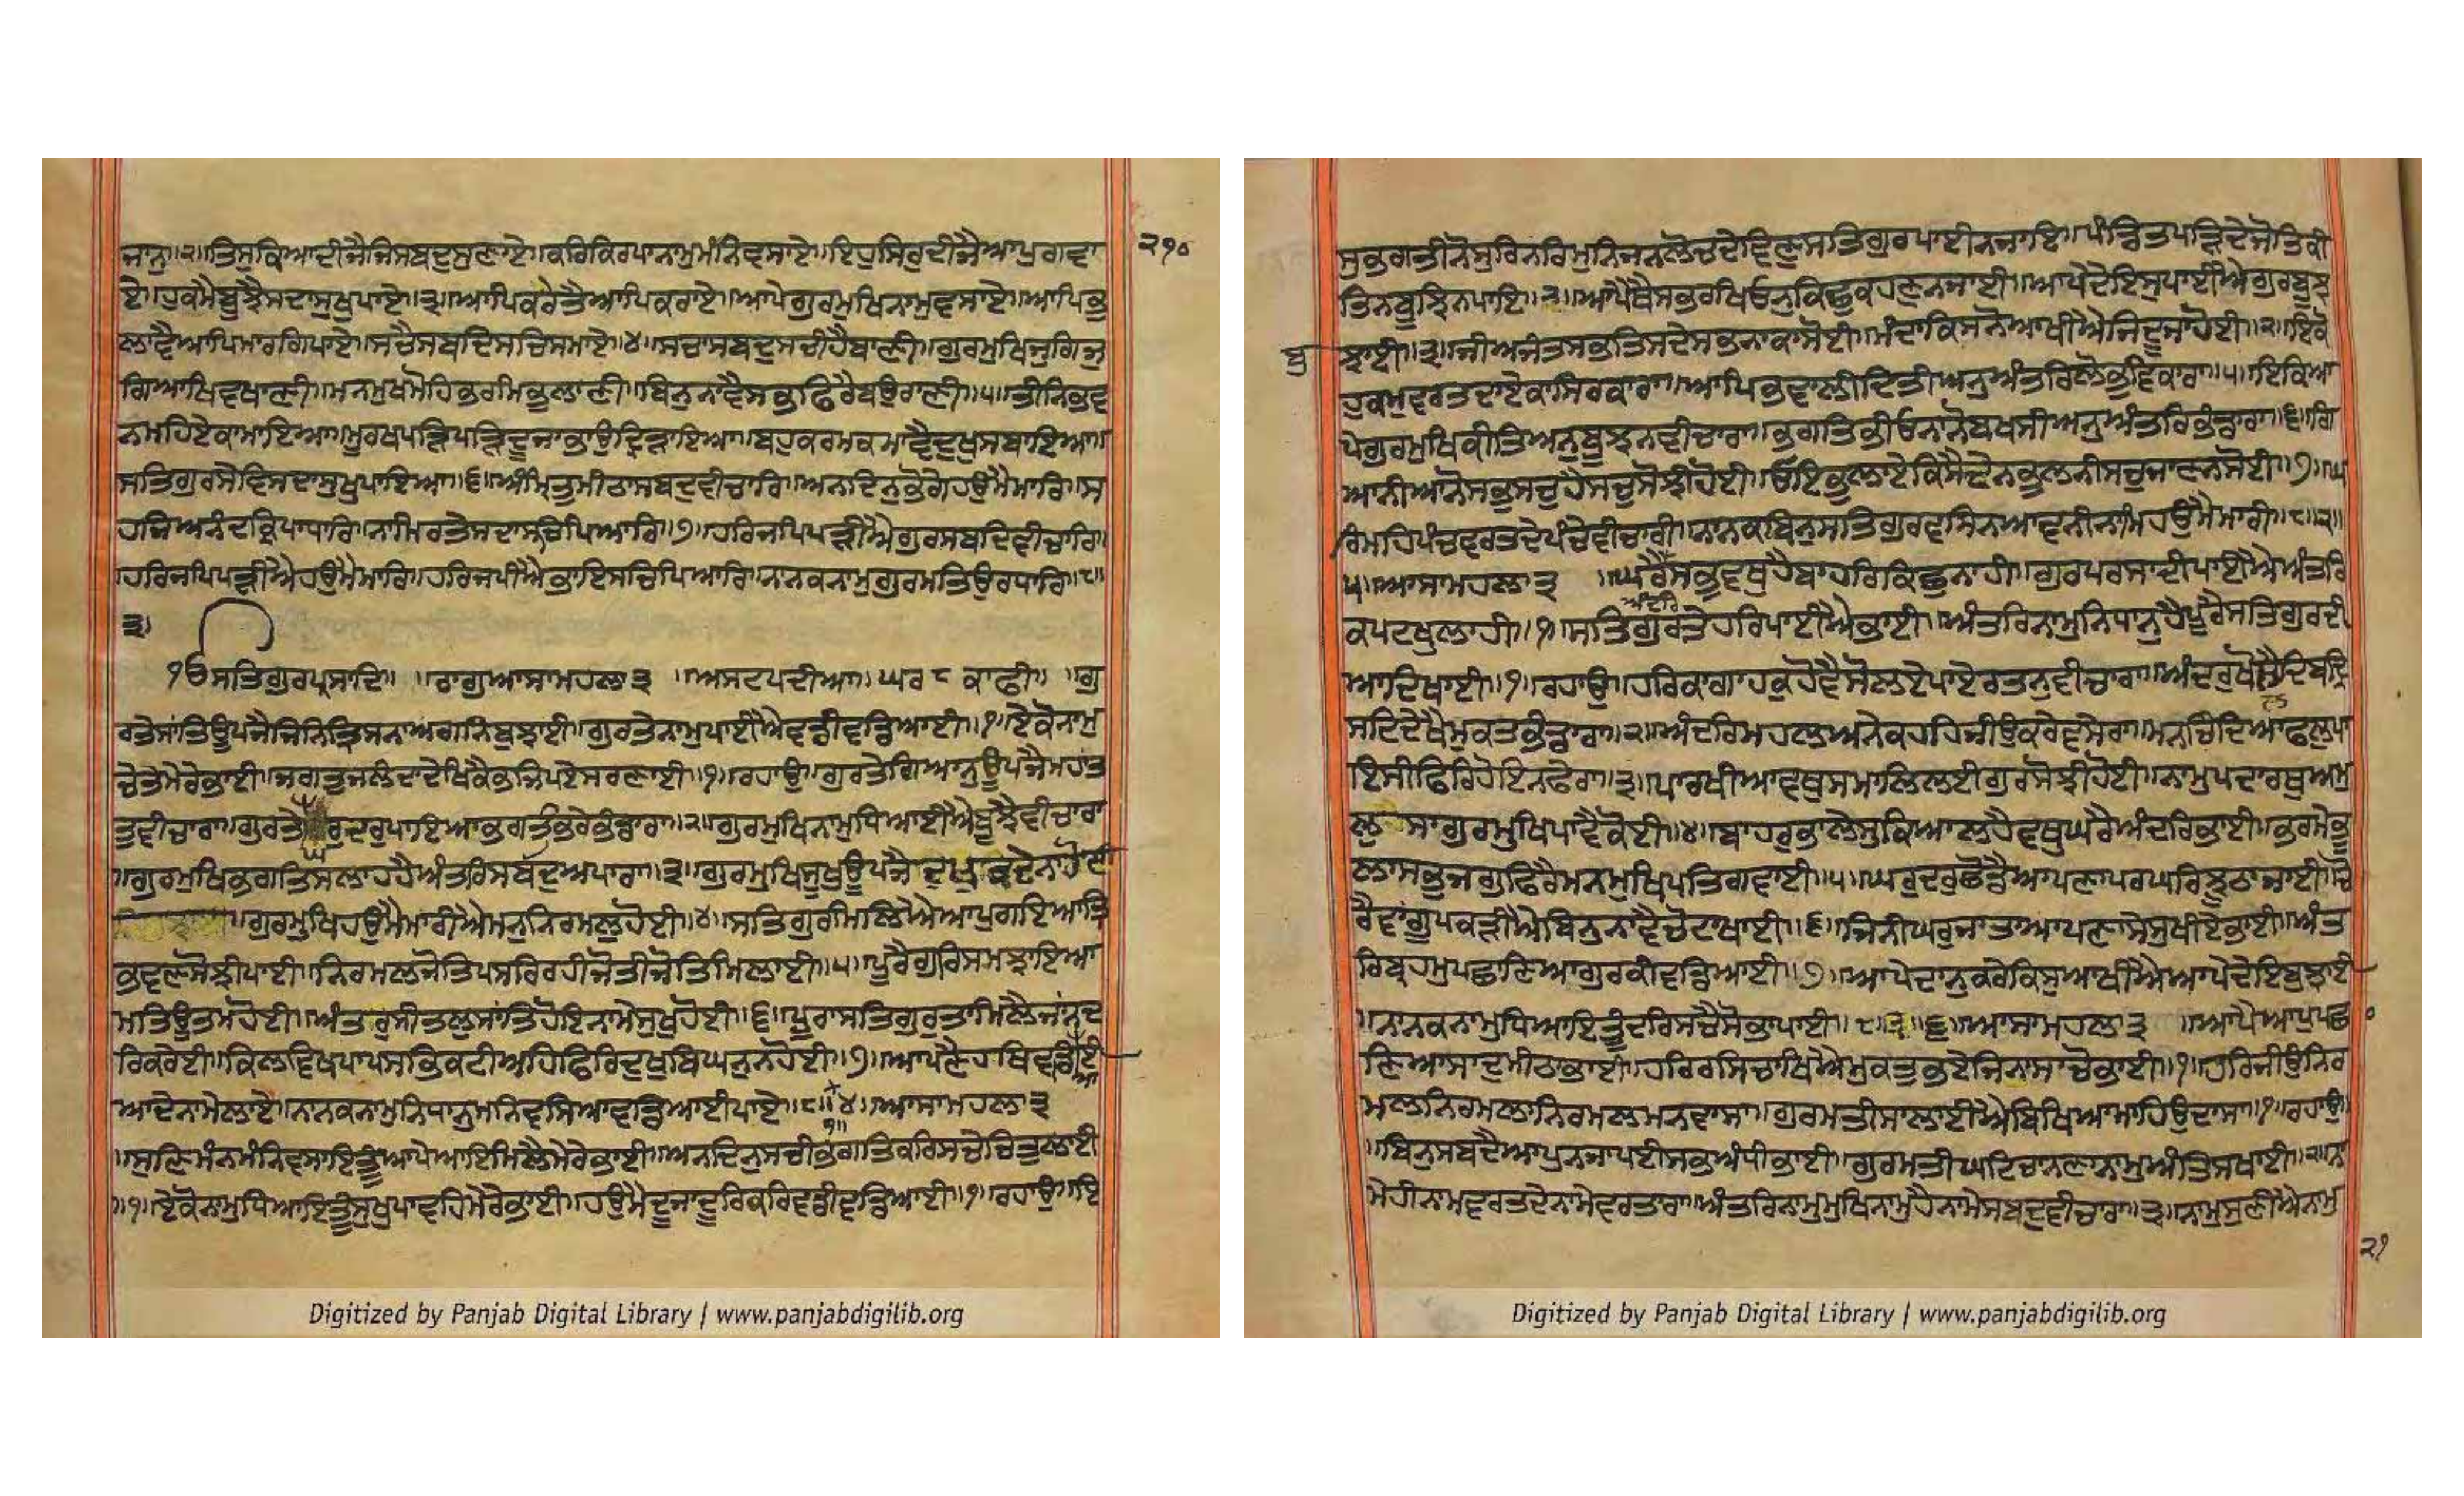 ਜਾਨੁ॥੨॥ਤਿਸੁਕਿਆਦੀਜੈਜਿਸਬਦੁਸੁਣਾਏ॥ਕਰਿਕਿਰਪਾਨਾਮੁਮੰਨਿਵਸਾਏ॥ਇਹੁਸਿਰੁਦੀਜੈਆਪੁਗਵਾ
੨੧੦
ਏ॥ਹੁਕਮੈਬੂਝੈਸਦਾਸੁਖੁਪਾਏ॥੩॥ਆਪਿਕਰੇਤੈਆਪਿਕਰਾਏ॥ਆਪੇਗੁਰਮੁਖਿਨਾਮੁਵਸਾਏ॥ਆਪਿਭੁ
ਲਾਵੈਆਪਿਮਾਰਗਿਪਾਏ॥ਸਚੈਸਬਦਿਸਚਿਸਮਾਏ॥੪॥ਸਚਾਸਬਦੁਸਚੀਹੈਬਾਣੀ॥ਗੁਰਮੁਖਿਜੁਗਿਜੁ
ਗਿਆਖਿਵਖਾਣੀ॥ਮਨਮੁਖਮੋਹਿਭਰਮਿਭੁਲਾਣੀ॥ਬਿਨੁਨਾਵੈਸਭਫਿਰੈਬਉਰਾਣੀ॥੫॥ਤੀਨਿਭਵ
ਨਮਹਿਏਕਾਮਾਇਆ॥ਮੂਰਖਪੜਿਪੜਿਦੂਜਾਭਾਉਦ੍ਰਿੜਾਇਆ॥ਬਹੁਕਰਮਕਮਾਵੈਦੁਖੁਸਬਾਇਆ॥
ਸਤਿਗੁਰਸੇਵਿਸਦਾਸੁਖੁਪਾਇਆ॥੬॥ਅੰਮ੍ਰਿਤੁਮੀਠਾਸਬਦੁਵੀਚਾਰਿ॥ਅਨਦਿਨੁਭੋਗੇਹਉਮੈਮਾਰਿ॥ਸ
ਹਜਿਅਨੰਦਕਿਰਪਾਧਾਰਿ॥ਨਾਮਿਰਤੇਸਦਾਸਚਿਪਿਆਰਿ॥੭॥ਹਰਿਜਪਿਪੜੀਐਗੁਰਸਬਦਿਵੀਚਾਰਿ॥
ਹਰਿਜਪਿਪੜੀਐਹਉਮੈਮਾਰਿ॥ਹਰਿਜਪੀਐਭਾਇਸਚਿਪਿਆਰਿ॥ਨਾਨਕਨਾਮੁਗੁਰਮਤਿਉਰਧਾਰਿ॥੮॥
੩॥
ੴਸਤਿਗੁਰਪ੍ਰਸਾਦਿ॥ ॥ਰਾਗੁਆਸਾਮਹਲਾ੩ ॥ਅਸਟਪਦੀਆ॥ਘਰ ੮ ਕਾਫੀ॥ ॥ਗੁ
ਰਤੇਸਾਂਤਿਊਪਜੈਜਿਨਿਤ੍ਰਿਸਨਾਅਗਨਿਬੁਝਾਈ॥ਗੁਰਤੇਨਾਮੁਪਾਈਐਵਡੀਵਡਿਆਈ॥੧॥ਏਕੋਨਾਮੁ
ਚੇਤਿਮੇਰੇਭਾਈ॥ਜਗਤੁਜਲੰਦਾਦੇਖਿਕੈਭਜਿਪਏਸਰਣਾਈ॥੧॥ਰਹਾਉ॥ਗੁਰਤੇਗਿਆਨੁਊਪਜੈਮਹਾਤ
ਤੁਵੀਚਾਰਾ॥ਗੁਰਤੇਘਰੁਦਰੁਪਾਇਆਭਗਤੀਭਰੇਭੰਡਾਰਾ॥੨॥ਗੁਰਮੁਖਿਨਾਮੁਧਿਆਈਐਬੂਝੈਵੀਚਾਰਾ
॥ਗੁਰਮੁਖਿਭਗਤਿਸਲਾਹਹੈਅੰਤਰਿਸਬਦੁਅਪਾਰਾ॥੩॥ਗੁਰਮੁਖਿਸੂਖੁਊਪਜੈਦੁਖੁਕਦੇਨਹੋਈ
॥ਗੁਰਮੁਖਿਹਉਮੈਮਾਰੀਐਮਨੁਨਿਰਮਲੁਹੋਈ॥੪॥ਸਤਿਗੁਰਮਿਲਿਐਆਪੁਗਇਆਤ੍ਰਿ
ਭਵਣਸੋਝੀਪਾਈ॥ਨਿਰਮਲਜੋਤਿਪਸਰਿਰਹੀਜੋਤੀਜੋਤਿਮਿਲਾਈ॥੫॥ਪੂਰੈਗੁਰਿਸਮਝਾਇਆ
ਮਤਿਊਤਮਹੋਈ॥ਅੰਤਰੁਸੀਤਲੁਸਾਂਤਿਹੋਇਨਾਮੇਸੁਖੁਹੋਈ॥੬॥ਪੂਰਾਸਤਿਗੁਰੁਤਾਂਮਿਲੈਜਾਂਨਦ
ਰਿਕਰੇਈ॥ਕਿਲਵਿਖਪਾਪਸਭਿਕਟੀਅਹਿਫਿਰਿਦੁਖੁਬਿਘਨੁਨਹੋਈ॥੭॥ਆਪਣੈਹਥਿਵਡਿਈ
ਆ
ਆਦੇਨਾਮੇਲਾਏ॥ਨਾਨਕਨਾਮੁਨਿਧਾਨੁਮਨਿਵਸਿਆਵਡਿਆਈਪਾਏ॥੮॥੪॥ਆਸਾਮਹਲਾ੩
੧॥
॥ਸੁਣਿਮੰਨਮੰਨਿਵਸਾਇਤੂੰਆਪੇਆਇਮਿਲੈਮੇਰੇਭਾਈ॥ਅਨਦਿਨੁਸਚੀਭਗਤਿਕਰਿਸਚੈਚਿਤੁਲਾਈ
॥੧॥ਏਕੋਨਾਮੁਧਿਆਇਤੂੰਸੁਖੁਪਾਵਹਿਮੇਰੇਭਾਈ॥ਹਉਮੈਦੂਜਾਦੂਰਿਕਰਿਵਡੀਵਡਿਆਈ॥੧॥ਰਹਾਉ॥ਇ
ਸੁਭਗਤੀਨੋਸੁਰਿਨਰਿਮੁਨਿਜਨਲੋਚਦੇਵਿਣੁਸਤਿਗੁਰਪਾਈਨਜਾਇ॥ਪੰਡਿਤਪੜਿਦੇਜੋਤਿਕੀ
ਤਿਨਬੂਝਿਨਪਾਇ॥੨॥ਆਪੈਥੈਸਭਰਖਿਓਨੁਕਿਛੁਕਹਣੁਨਜਾਈ॥ਆਪੇਦੇਇਸੁਪਾਈਐਗੁਰਬੂਝ
ਬੁ
ਝਾਈ॥੩॥ਜੀਅਜੰਤਸਭਤਿਸਦੇਸਭਨਾਕਾਸੋਈ॥ਮੰਦਾਕਿਸਨੋਆਖੀਐਜਿਦੂਜਾਹੋਈ॥੨॥ਇਕੋ
ਹੁਕਮੁਵਰਤਦਾਏਕਾਸਿਰਕਾਰਾ॥ਆਪਿਭਵਾਲੀਦਿਤੀਅਨੁਅੰਤਰਿਲੋਭੁਵਿਕਾਰਾ॥੫॥ਇਕਿਆ
ਪੇਗੁਰਮੁਖਿਕੀਤਿਅਨੁਬੂਝਨਵੀਚਾਰਾ॥ਭਗਤਿਭੀਓਨਾਨੋਬਖਸੀਅਨੁਅੰਤਰਿਭੰਡਾਰਾ॥੬॥ਗਿ
ਆਨੀਆਨੋਸਭੁਸਚੁਹੈਸਚੁਸੋਝੀਹੋਈ॥ਓਇਭੁਲਾਏਕਿਸੈਦੇਨਭੁਲਨੀਸਚੁਜਾਣਨਸੋਈ॥੭॥ਘ
ਰਿਮਹਿਪੰਚਵਰਤਦੇਪੰਚੇਵੀਚਾਰੀ॥ਨਾਨਕਬਿਨੁਸਤਿਗੁਰਵਸਿਨਆਵਨੀਨਾਮਿਹਉਮੈਮਾਰੀ॥੮॥੨॥
੫॥ਆਸਾਮਹਲਾ੩ ॥ਘਰੈਸਭੁਵਥੁਹੈਬਾਹਰਿਕਿਛੁਨਾਹੀ॥ਗੁਰਪਰਸਾਦੀਪਾਈਐਅੰਤਰਿ
ਅੰਦਰਿ
ਕਪਟਖੁਲਾਹੀ॥੧॥ਸਤਿਗੁਰਤੇਹਰਿਪਾਈਐਭਾਈ॥ਅੰਤਰਿਨਾਮੁਨਿਧਾਨੁਹੈਪੂਰੈਸਤਿਗੁਰਦੀ
ਆਦਿਖਾਈ॥੧॥ਰਹਾਉ॥ਹਰਿਕਾਗਾਹਕੁਹੋਵੈਸੋਲਏਪਾਏਰਤਨੁਵੀਚਾਰਾ॥ਅੰਦਰੁਖੋਲੈਦਿਬਦ੍ਰਿ
ਸਟਿਦੇਖੈਮੁਕਤਭੰਡਾਰਾ॥੨॥ਅੰਦਰਿਮਹਲਅਨੇਕਹਹਿਜੀਉਕਰੇਵਸੇਰਾ॥ਮਨਚਿੰਦਿਆਫਲੁਪਾ
ਇਸੀਫਿਰਿਹੋਇਨਫੇਰਾ॥੩॥ਪਾਰਖੀਆਵਥੁਸਮਾਲਿਲਈਗੁਰਸੋਝੀਹੋਈ॥ਨਾਮੁਪਦਾਰਥੁਅਮੁ
ਲਸਾਗੁਰਮੁਖਿਪਾਵੈਕੋਈ॥੪॥ਬਾਹਰੁਭਾਲੇਸੁਕਿਆਲਹੈਵਥੁਘਰੈਅੰਦਰਿਭਾਈ॥ਭਰਮੇਭੂ
ਲਾਸਭੁਜਗੁਫਿਰੈਮਨਮੁਖਿਪਤਿਗਵਾਈ॥੫॥ਘਰੁਦਰੁਛੋਡੈਆਪਣਾਪਰਘਰਿਝੂਠਾਜਾਈ॥ਚੋ
ਰੈਵਾਂਗੂਪਕੜੀਐਬਿਨੁਨਾਵੈਚੋਟਾਖਾਈ॥੬॥ਜਿਨੀਘਰੁਜਾਤਾਆਪਣਾਸੇਸੁਖੀਏਭਾਈ॥ਅੰਤ
ਰਿਬ੍ਰਹਮੁਪਛਾਣਿਆਗੁਰਕੀਵਡਿਆਈ॥੭॥ਆਪੇਦਾਨੁਕਰੇਕਿਸੁਆਖੀਐਆਪੇਦੇਇਬੁਝਾਈ
॥ਨਾਨਕਨਾਮੁਧਿਆਇਤੂੰਦਰਿਸਚੈਸੋਭਾਪਾਈ॥੮॥੩॥੬॥ਆਸਾਮਹਲਾ੩ ॥ਆਪੈਆਪੁਪਛਾ
ਣਿਆਸਾਦੁਮੀਠਾਭਾਈ॥ਹਰਿਰਸਿਚਾਖਿਐਮੁਕਤੁਭਏਜਿਨਾਸਾਚੋਭਾਈ॥੧॥ਹਰਿਜੀਉਨਿਰ
ਮਲਨਿਰਮਲਾਨਿਰਮਲਮਨਵਾਸਾ॥ਗੁਰਮਤੀਸਾਲਾਹੀਐਬਿਖਿਆਮਾਹਿਉਦਾਸਾ॥੧॥ਰਹਾਉ॥
॥ਬਿਨੁਸਬਦੈਆਪੁਨਜਾਪਈਸਭਅੰਧੀਭਾਈ॥ਗੁਰਮਤੀਘਟਿਚਾਨਣਾਨਾਮੁਅੰਤਿਸਖਾਈ॥੨॥ਨਾ
ਮੇਹੀਨਾਮਵਰਤਦੇਨਾਮੇਵਰਤਾਰਾ॥ਅੰਤਰਿਨਾਮੁਮੁਖਿਨਾਮੁਹੈਨਾਮੇਸਬਦੁਵੀਚਾਰਾ॥੩॥ਨਾਮੁਸੁਣੀਐਨਾਮੁ
੨੧
Digitized by Panjab Digital Library | www.panjabdigilib.org
Digitized by Panjab Digital Library | www.panjabdigilib.org